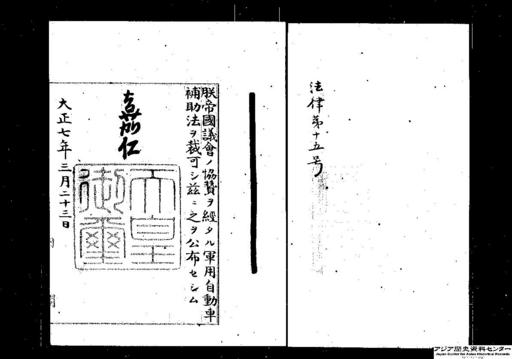 法律第十五号
朕帝國議會ノ協賛ヲ經タル軍用自動車
補助法ヲ裁可シ茲ニ之ヲ公布セシム
嘉仁
天皇
御璽
大正七年三月二十三日
内
閣
アジア歴史資料センター
Japan Center for Asian Historical Records